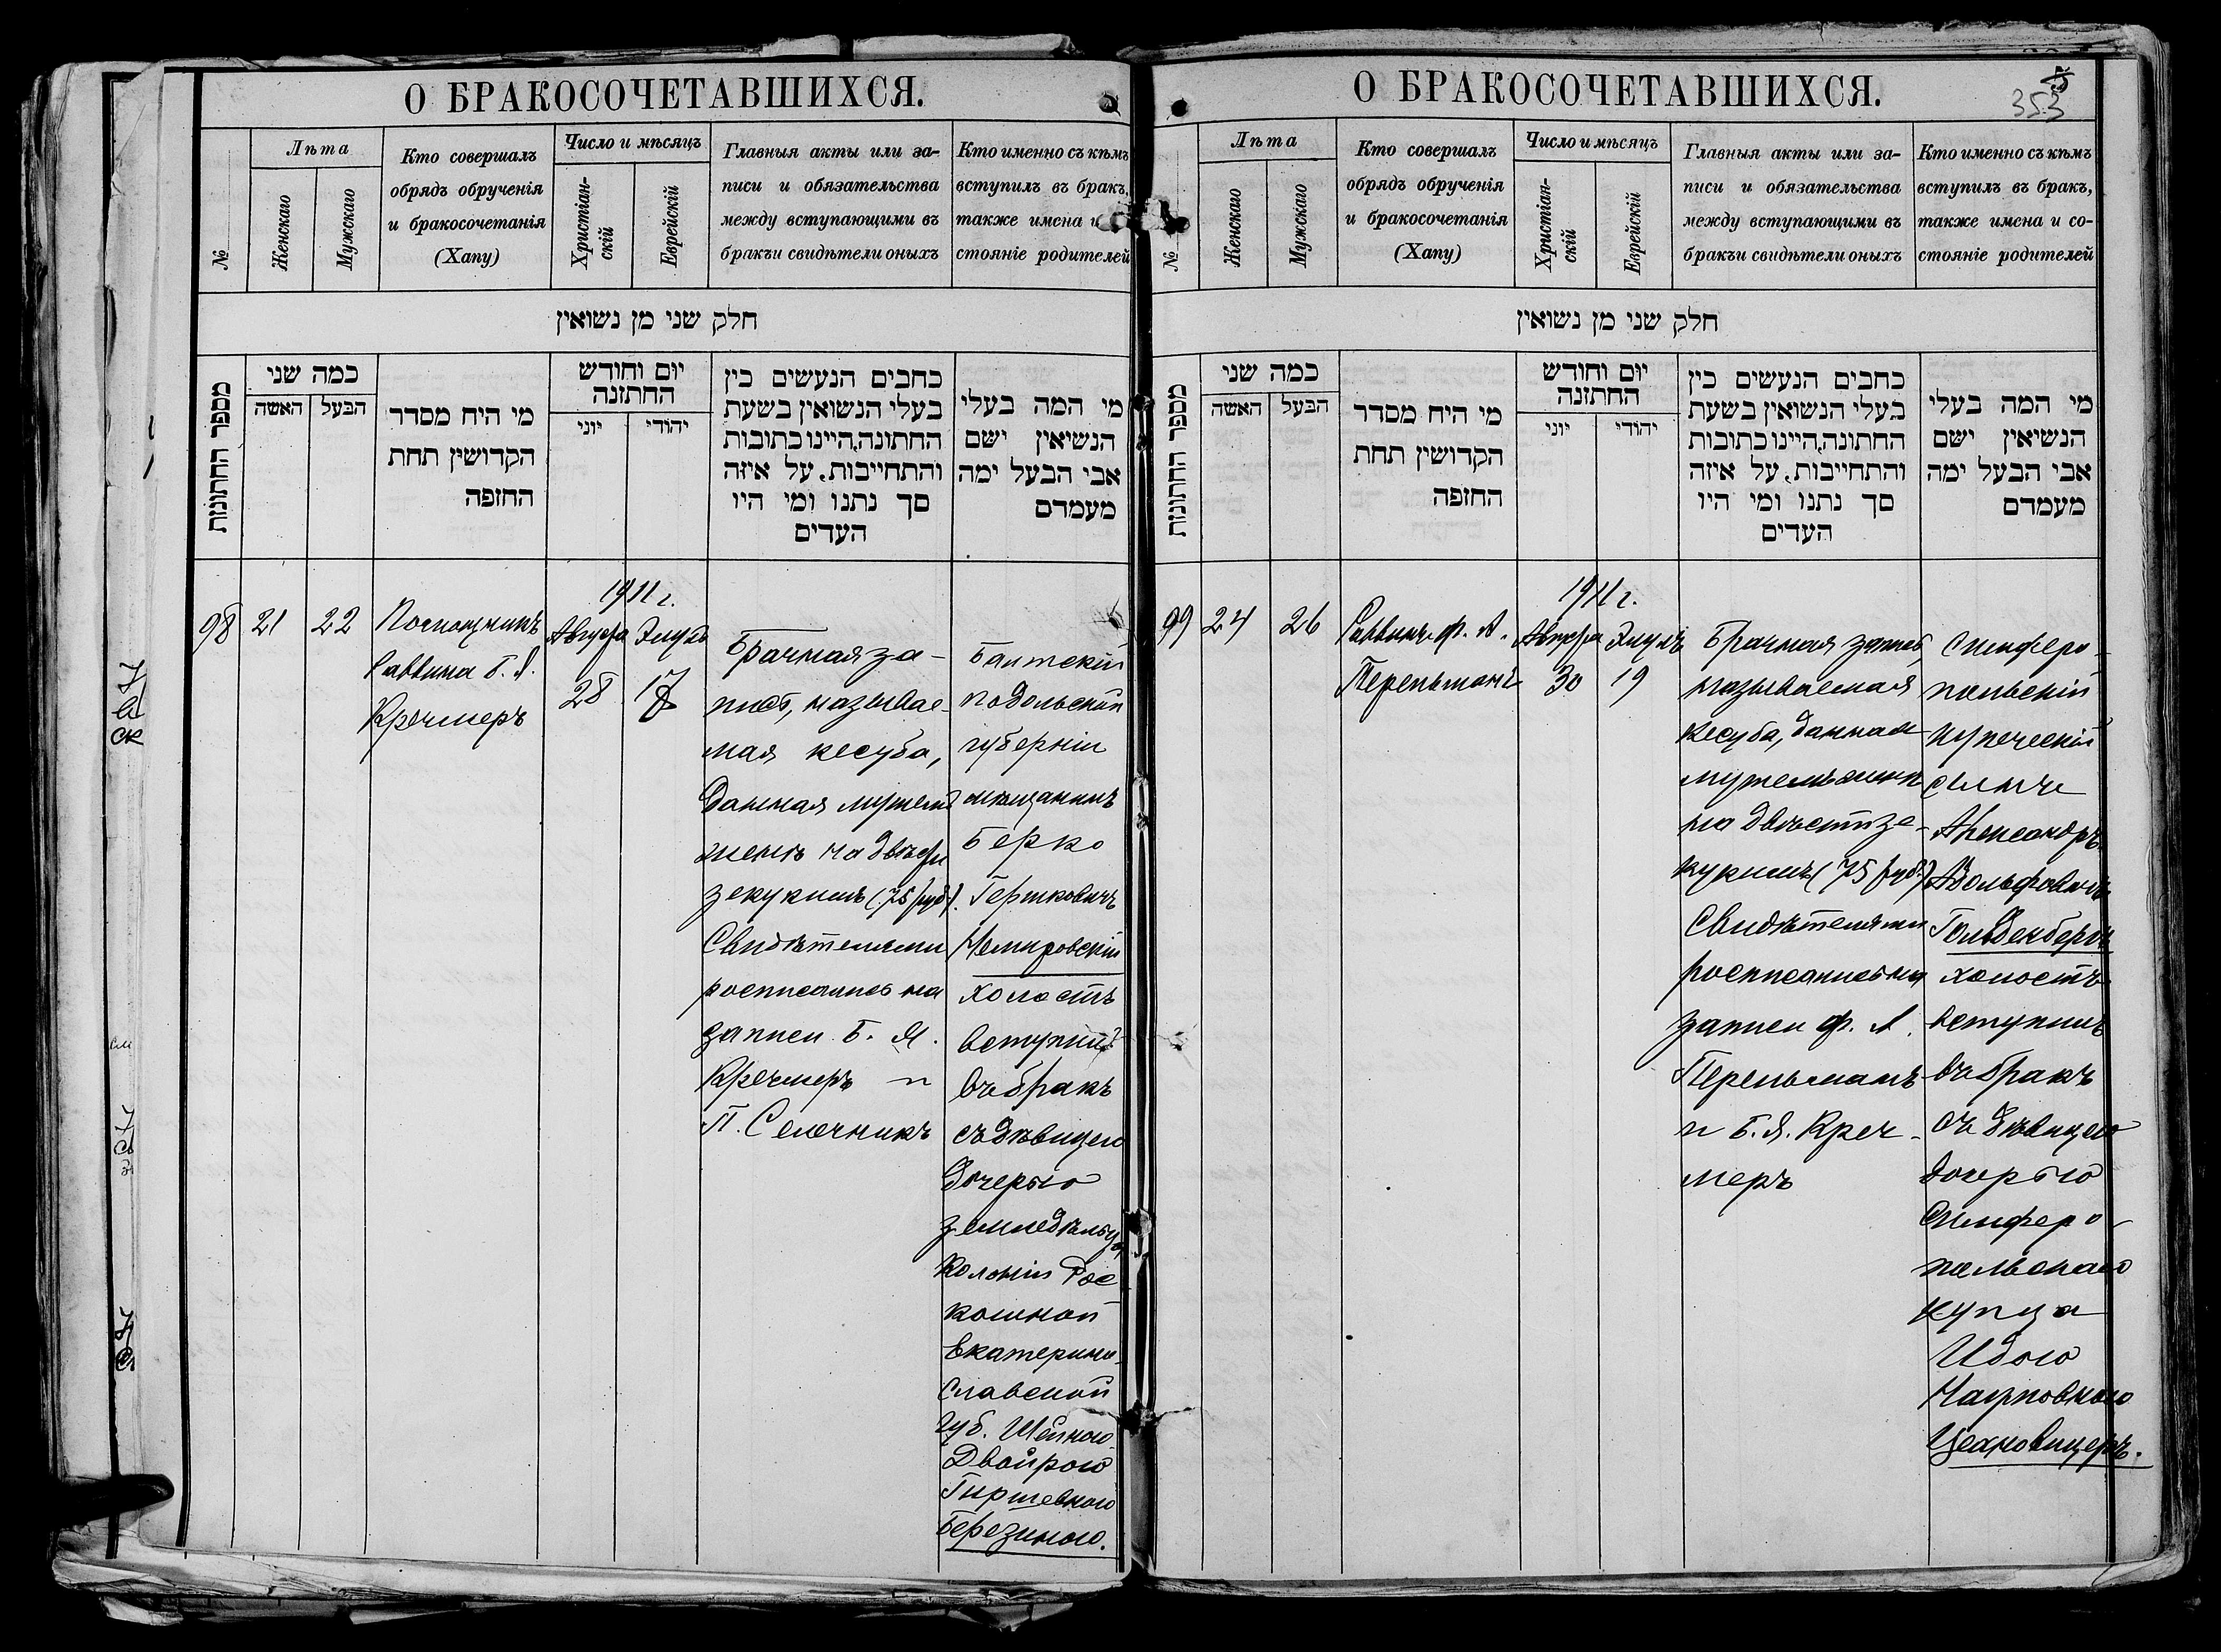 О БРАКОСОЧЕТАВШИХСЯ.
№
Лѣта
Женскаго
Мужскаго
Кто совершалъ
обрядъ обрученія
и бракосочетанія
(Хапу)
Число и мѣсяцъ
Христіан-
скій
Еврейскій
Главныя акты или за-
писи и обязательства
между вступающими въ
бракъи свидѣтели оныхъ
Кто именно съ кѣмъ
вступилъ въ бракъ,
также имена и
стояніе родителей
חלק שני מן נשואין
מספר החתונות
כמה שני
האשה
הבעל
מי היח מסדר
הקדושין תחת
החזפה
יום וחודש
החתזנה
יוני
יהודי
כחבים הנעשים כין
בעלי הנשואין בשעת
החתונה,היינו כתובות
והתחייבות. על איזה
סך נתנו ומי היו
העדים
מי המה בעלי
הנשיאין ישם
אבי הבעל ימה
מעמדם
98
21
22
Помощникъ
Раввина Б. Я.
Кречмеръ
1911 г.
Августа
28
Элулъ
17
Брачная за-
пись, называе-
мая кесуба,
данная мужемъ
женѣ на двѣсти
зекукимъ (75 руб.).
Свидѣтелями
росписались на
записи Б. Я.
Кречмеръ и
П. Сапожникъ
Балтскій
подольской
губерніи
мѣщанинъ
Берко
Гершковичъ
Немировскій
холостъ
вступилъ
въ бракъ
съ дѣвицею
дочерью
земледѣльца
колоніи Рос
кошной
Екатерино-
славской
губ. Шейною-
Двойрою
Гиршевною
Березиною.
О БРАКОСОЧЕТАВШИХСЯ.
353
№
Лѣта
Женскаго
Мужскаго
Кто совершалъ
обрядъ обрученія
и бракосочетанія
(Хапу)
Число и мѣсяцъ
Христіан-
скій
Еврейскій
Главныя акты или за-
писи и обязательства
между вступающими въ
бракъи свидѣтели оныхъ
Кто именно съ кѣмъ
вступилъ въ бракъ,
также имена и со-
стояніе родителей
חלק שני מן נשואין
מספר החתונות
כמה שני
האשה
הבעל
מי היח מסדר
הקדושין תחת
החזפה
יום וחודש
החתזנה
יוני
יהודי
כחבים הנעשים כין
בעלי הנשואין בשעת
החתונה,היינו כתובות
והתחייבות. על איזה
סך נתנו ומי היו
העדים
מי המה בעלי
הנשיאין ישם
אבי הבעל ימה
מעמדם
99
24
26
Раввинъ Ф. А.
Перельманъ
1911 г.
Августа
30
Элулъ
19
Брачная запись,
называемая
кесуба, данная
мужемъ женѣ
на двѣсти зе-
кукимъ (75 руб.)
Свидѣтелями
росписались на
записи Ф. А.
Перельманъ
и Б. Я. Креч-
меръ
Симферо-
польскій
купеческій
сынъ
Александръ
Адольфовичъ
Гольденбергъ
холостъ
вступилъ
въ бракъ
съ дѣвицею
дочерью
Симферо-
польскаго
купца
Идою
Наумовною
Цехновицеръ.